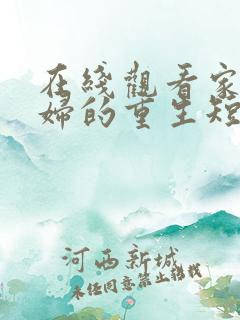 在綫觀看家
婦的重生短
河西新城
未经同意禁止转载